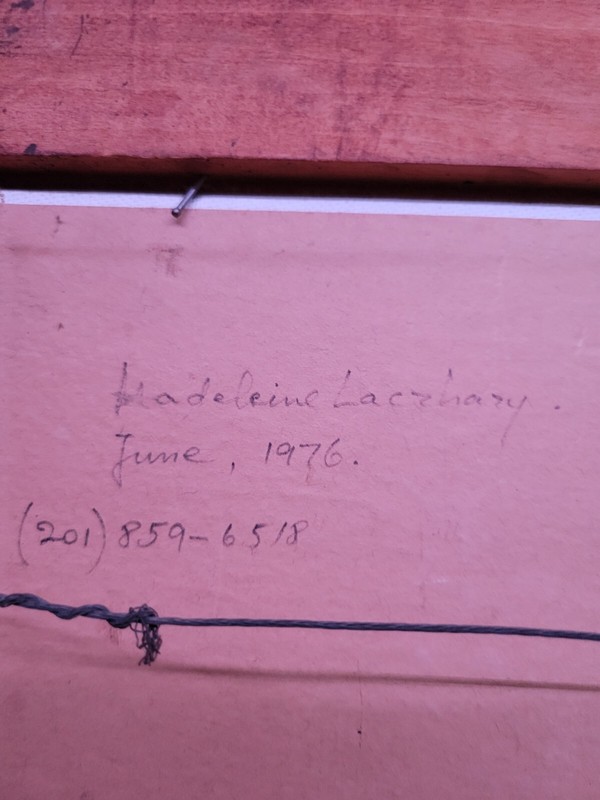 Madeleine Laczhazy.
June, 1976.
(201) 859-6518